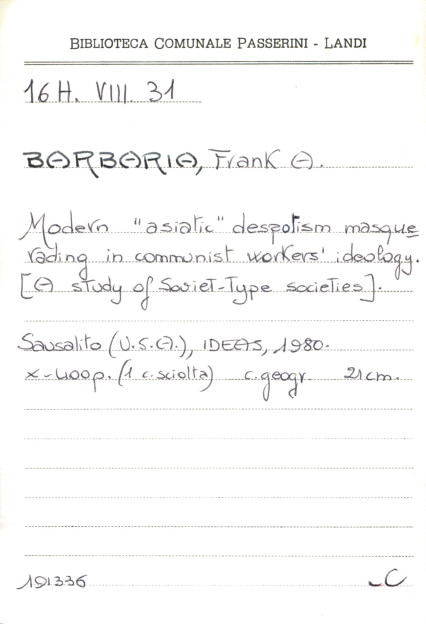 BIBLIOTECA COMUNALE PASSERINI - LANDI
16 H. VIII. 31
BARBARIA, Frank A.
Modern "asiatic" despotism masque
rading in communist workers' ideology.
[A study of Soviet-Type societies].
Sausalito (U.S.A.), IDEAS, 1980.
x-400p. (1 c. sciolta) c. geogr. 21 cm.
191336